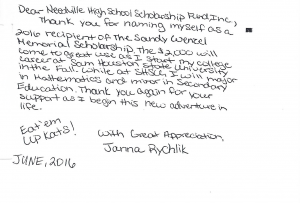 Dear Needville High School Scholarship Fund, Inc,
Thank you for naming myself as a
2016 recipient of the Sandy Wencel
Memorial Scholarship. The $2,000 will
come to great use as I start my college
career at Sam Houston State University
in the fall. While at SHSU, I will major
in Mathematics and minor in Secondary
Education. Thank you again for your
support as I begin this new adventure in
life.
Eat'em
UP Kats!
With Great Appreciation,
Janna Rychlik
JUNE, 2016